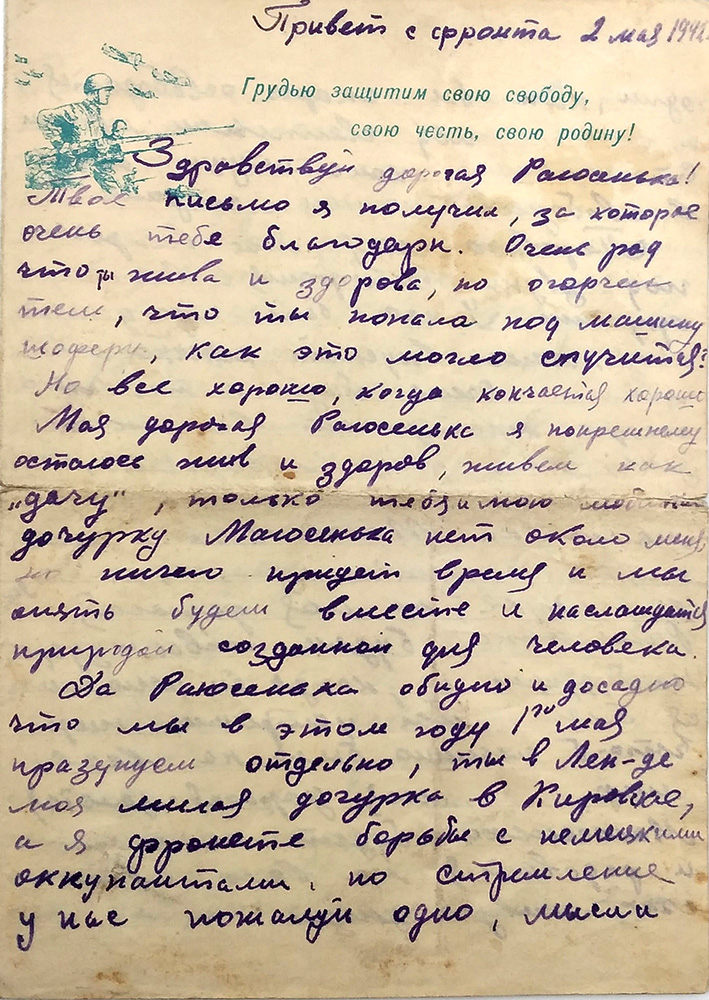 Привет с фронта 2 мая 1942
Грудью защитим свою свободу,
свою честь, свою родину!
Здравствуй дорогая Раюсенька!
Твое письмо я получил, за которое
очень тебе благодарн. Очень рад
что ты жива и здорова, но огорчен
тем, что ты попала под машину
шоферн, как это могло случится?
Но все хорошо, когда кончается хорошо
Моя дорогая Раюсенька я попрежнему
остаюсь жив и здоров, живем как
„дачу", только тебя и мою любимую
дочурку Маюсенька нет около меня,
но ничего придет время и мы
опять будем вместе и наслаждатся
природой созданной для человека.
Да Раюсенька обидно и досадно
что мы в этом году 1го мая
празунуем отдельно, ты в Лен-де
моя милая дочурка в Кировске,
а я фронте борьбы с немецкими
оккупантами, но стримление
у нас пожалуй одно, мысли